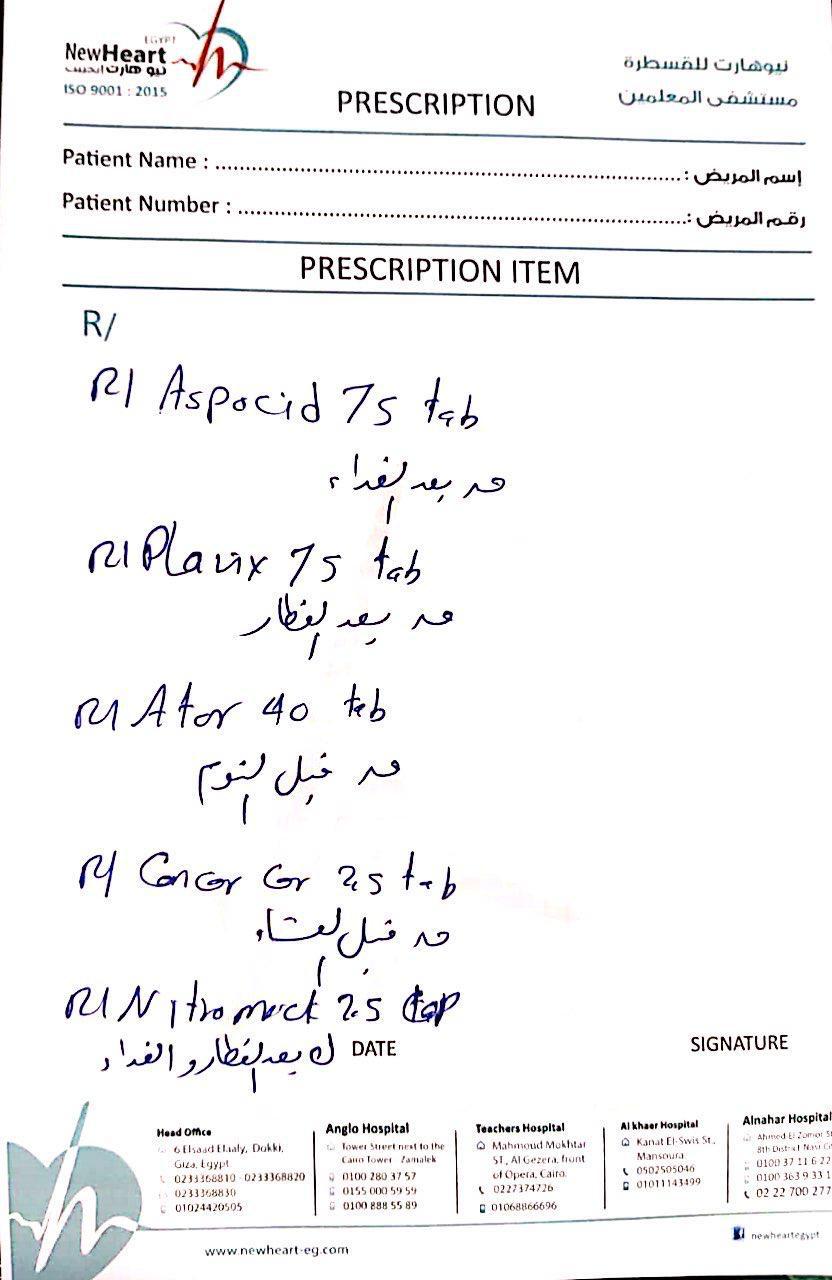 EGYPT
NewHeart
نيو هارت ايجيبت
ISO 9001 : 2015
نيوهارت للقسطرة
مستشفى المعلمين
PRESCRIPTION
Patient Name : إسم المريض :
Patient Number : رقم المريض :
PRESCRIPTION ITEM
R/
R/ Aspocid 75 tab
قرص بعد الغداء
R/ Plavix 75 tab
قرص بعد الفطار
R/ Ator 40 tab
قرص قبل النوم
R/ Concor Cor 2,5 tab
قرص قبل العشاء
R/ Nitromack 2.5 cap
بعد الفطار و الغداء
DATE
SIGNATURE
Head Office
6 Elsaad Elaaly, Dokki,
Giza, Egypt
0233368810 - 0233368820
0233368830
01024420505
Anglo Hospital
Tower Street next to the
Cairo Tower Zamalek
0100 280 37 57
0155 000 59 59
0100 888 55 89
Teachers Hospital
Mahmoud Mokhtar
ST., Al Gezera, front
of Opera, Cairo.
0227374726
01068866696
Al khaer Hospital
Kanat El-Swis St.,
Mansoura
0502505046
01011143499
Alnahar Hospital
Ahmed El Zomor St
8th District Nasr Ci
0100 37 11 6 22
0100 363 9 33 1
02 22 700 277
www.newheart-eg.com
newheartegypt